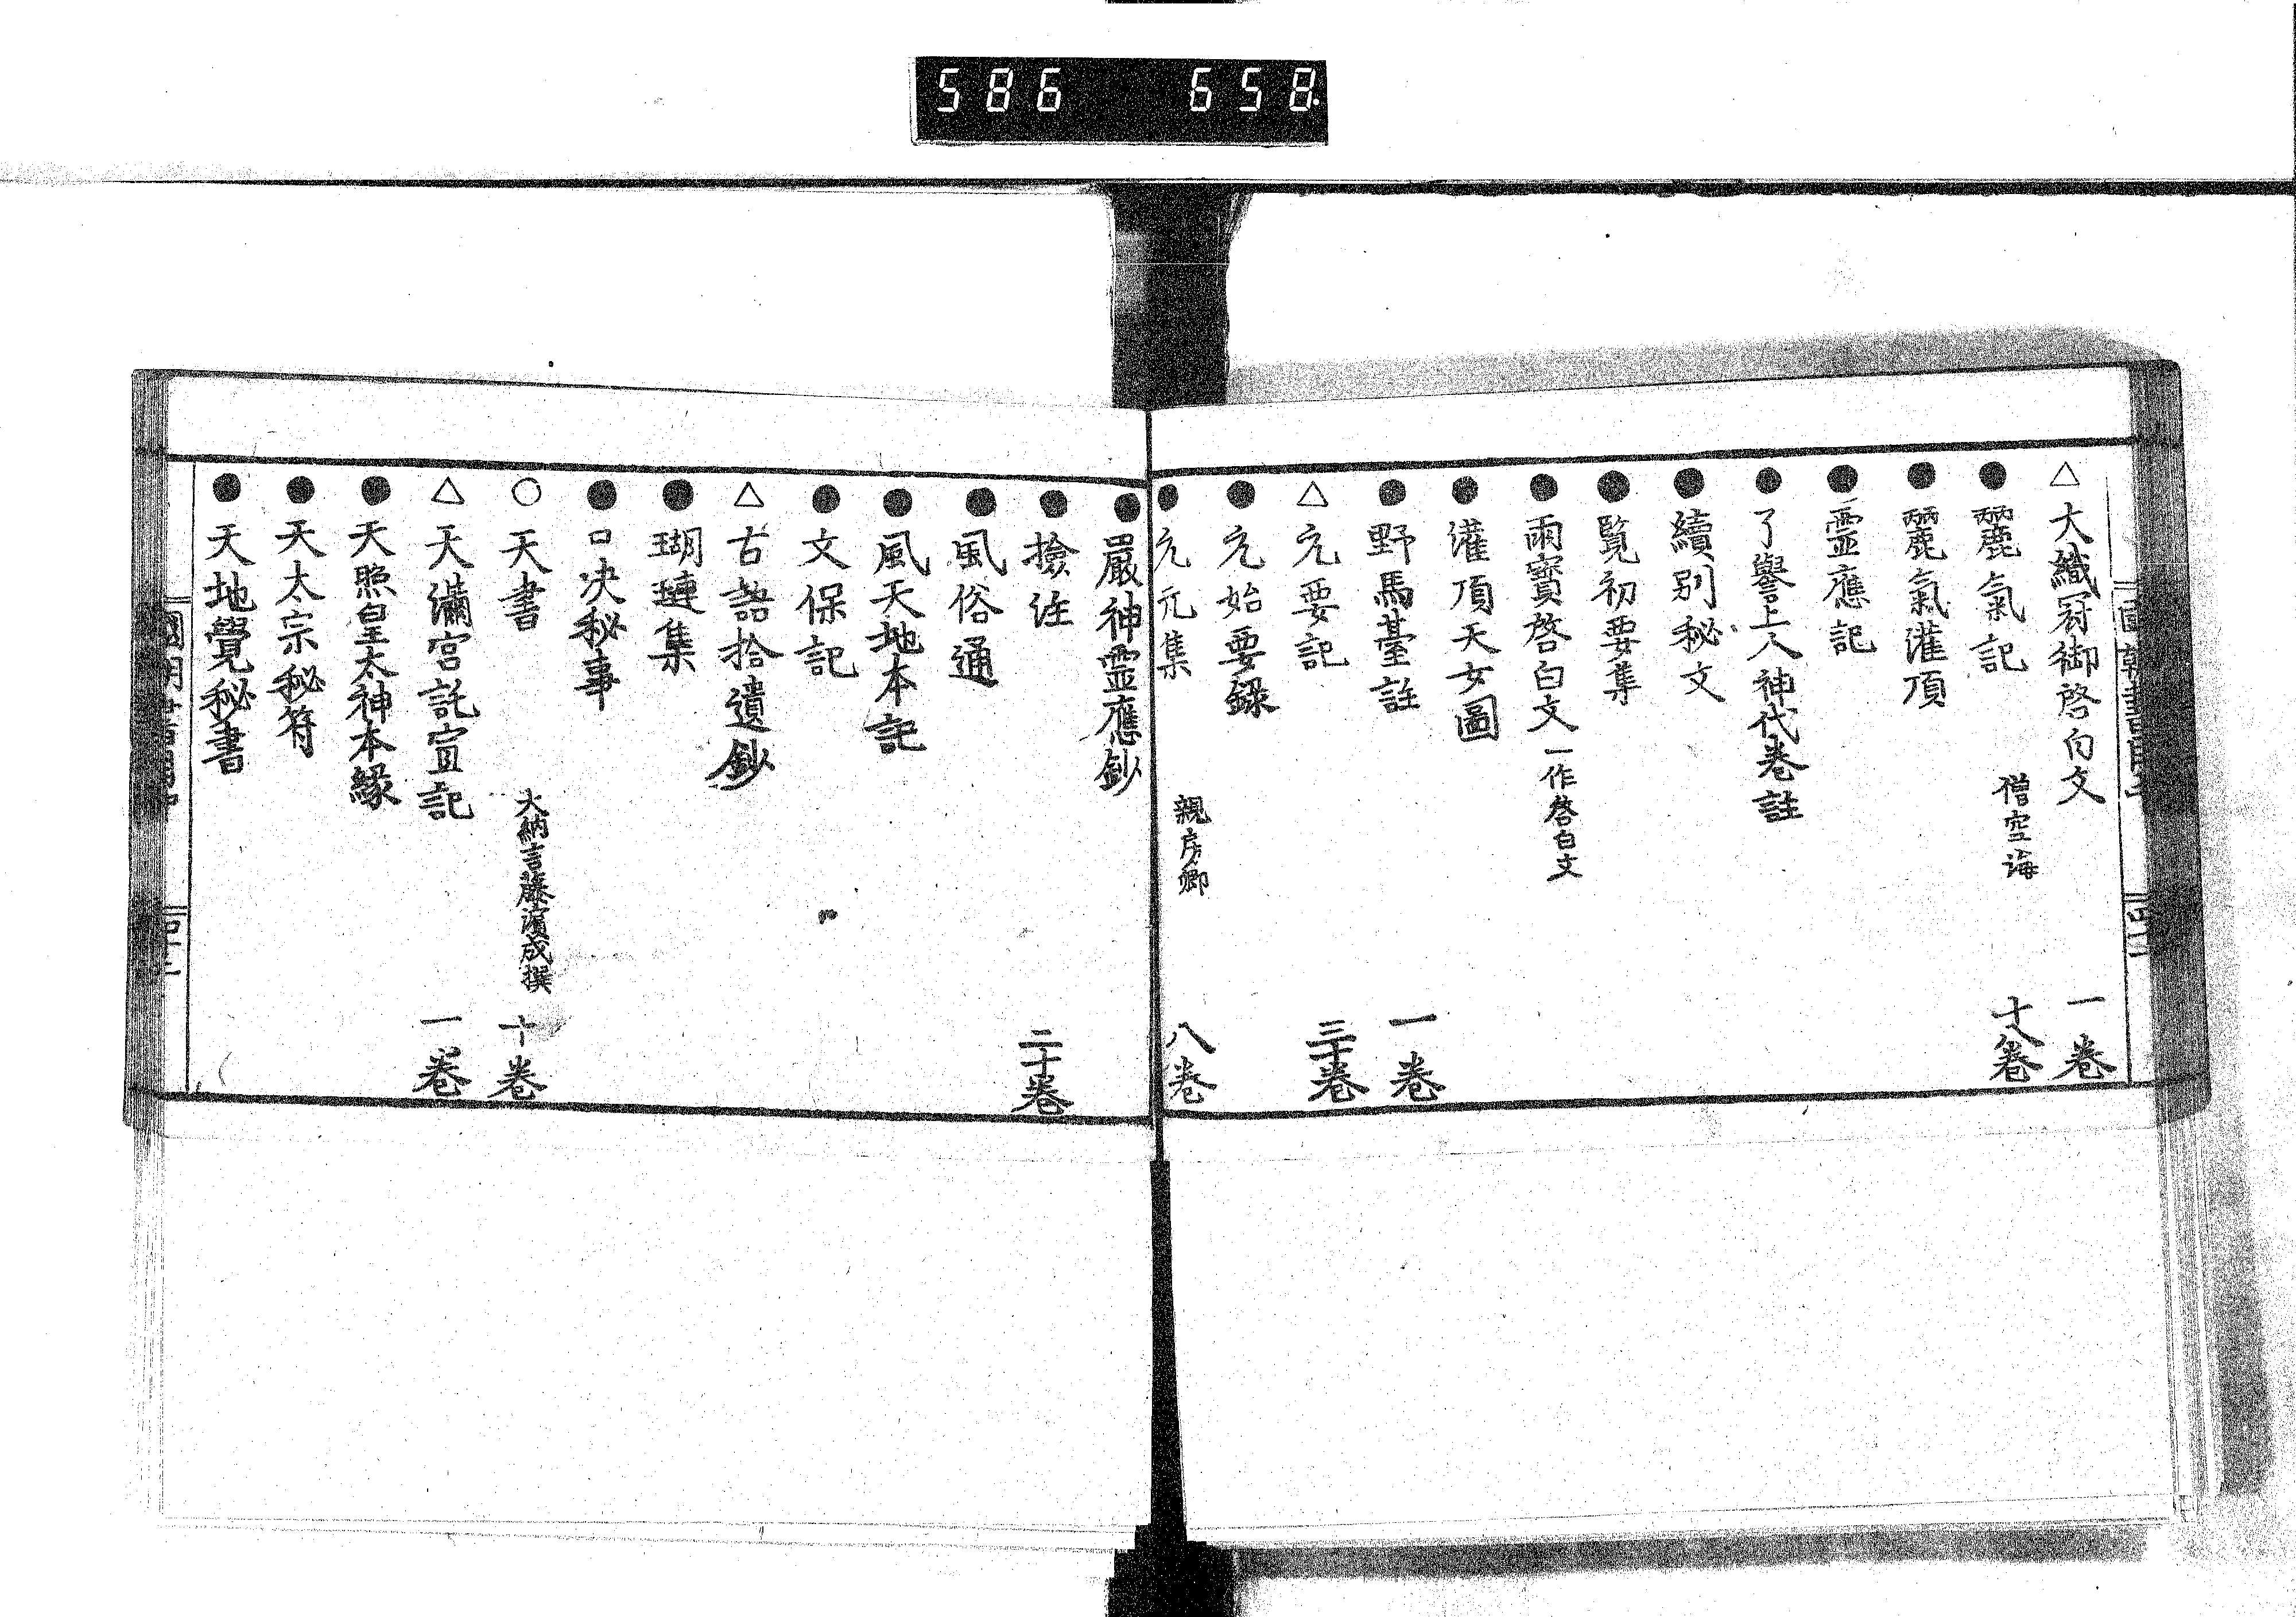 586 658.
△大織冠御啓白文 一卷
●麗氣記 僧空海 十八卷
●麗氣灌頂
●靈應記
●了譽上人神代卷註
●續別秘文
●覧初要集
●雨寶啓白文 一作啓白文
●灌頂天女圖
●野馬臺註 一卷
△元要記 三十卷
●元始要録
●元元集 親房卿 八卷
●嚴神靈應鈔
●撿注 二十卷
●風俗通
●風天地本記
●文保記
△古語拾遺鈔
●瑚璉集
●口决秘事
○天書 大納言藤濱成撰 十卷
△天滿宮託宣記 一卷
●天照皇太神本縁
●天太宗秘符
●天地覺秘書